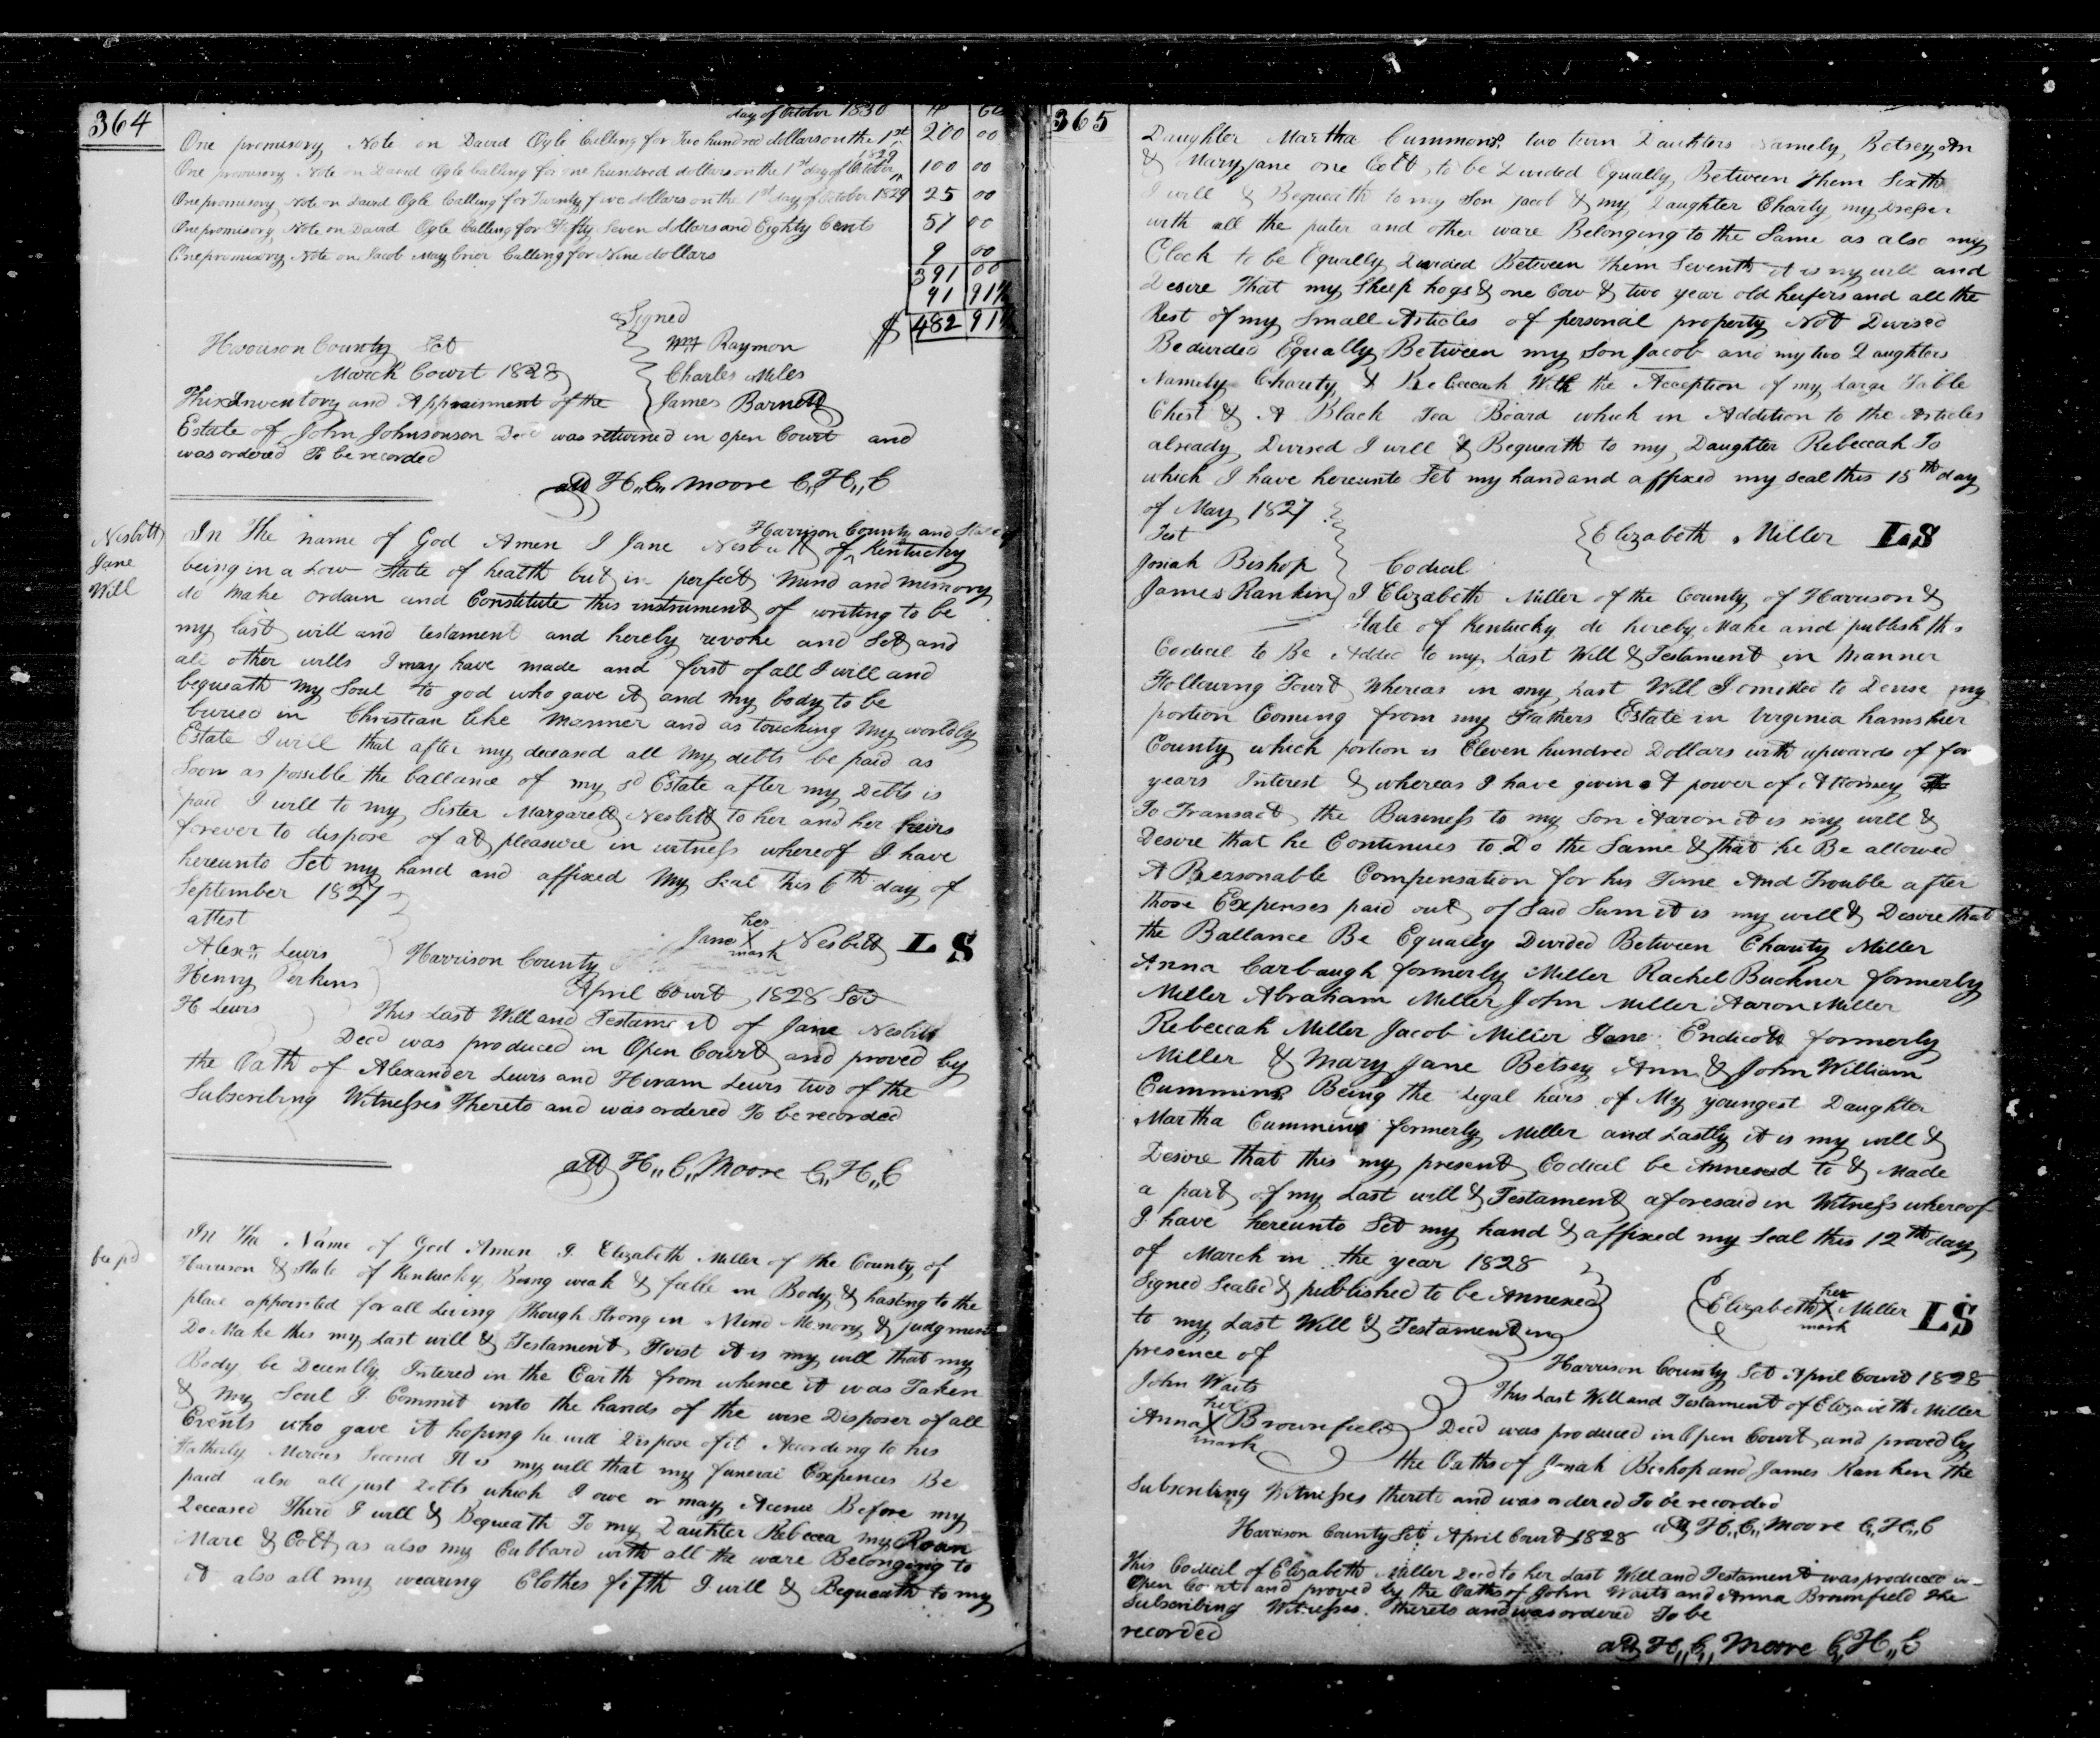 364
day of October 1830
One promisory Note on David Ogle Calling for Two hundred dollars on the 1st 200 00
1829
One promisory Note on David Ogle Calling for one hundred dollars on the 1st day of October 100 00
One promisory Note on David Ogle Calling for Twenty five dollars on the 1st day of October 1829 25 00
One promisory Note on David Ogle Calling for Fifty Seven dollars and Eighty Cents 57 00
One promisory Note on Jacob May Calling for Nine dollars 9 00
391 00
91 91½
$ 482 91½
Signed
Harrison County Sct
Wm Raymon
March Court 1828
Charles Miles
This Inventory and Appraisment of the
James Barnett
Estate of John Johnsonson Decd was returned in open Court and
was ordered To be recorded
att H,,C,, Moore C,,H,,C
Nesbitt
Jane
Will
In The name of God Amen I Jane Nesbitt of ^ Harrison County and State of Kentucky
being in a Low State of health but in perfect mind and memory
do make ordain and Constitute this instrument of writing to be
my last will and testament and hereby revoke and Set and
all other wills I may have made and first of all I will and
bequeath my Soul to god who gave it and my body to be
buried in Christian like manner and as touching my worldly
Estate I will that after my deceased all my debts be paid as
Soon as possible the ballance of my sd Estate after my Debts is
paid I will to my Sister Margarett Nesbitt to her and her heirs
forever to dispose of at pleasure in witness whereof I have
hereunto Set my hand and affixed my Seal this 6th day of
September 1827
attest
her
Jane X Nesbitt LS
mark
Alexr Lewis
Harrison County
Henry Perkins
April Court 1828 Sct
H Lewis
This Last Will and Testament of Jane Nesbitt
Decd was produced in Open Court and proved by
the Oath of Alexander Lewis and Hiram Lewis two of the
Subscribing Witnesses Thereto and was ordered To be recorded
att H,,C,, Moore C,,H,,C
In The Name of God Amen I Elizabeth Miller of the County of
Harrison & State of Kentucky Being weak & feeble in Body & hasting to the
place appointed for all Living Though Strong in Mind Memory & judgment
Do Make this my Last will & Testament First it is my will that my
Body be Decently Intered in the Earth from whence it was Taken
& my Soul I Commit into the hands of the wise Disposer of all
Events who gave it hoping he will Dispose of it According to his
Fatherly Mercies Second It is my will that my funeral Expences Be
paid also all just Debts which I owe or may Acrue Before my
Deceased Third I will & Bequeath To my Daughter Rebecca my Roan
Mare & Colt as also my Cubbard with all the ware Belonging to
it also all my wearing Clothes fifth I will & Bequeath to my
365
Daughter Martha Cummons two twin Daughters Namely Betsey An
& Maryjane one Colt to be Divided Equally Between them Sixth
I will & Bequeath to my Son Jacob & my Daughter Charity my Dresser
with all the puter and other ware Belonging to the Same as also my
Clock to be Equally Divided Between them Seventh it is my will and
Desire That my Sheep hogs & one Cow & two year old heifers and all the
Rest of my Small Articles of personal property Not Devised
Be divided Equally Between my Son Jacob and my two Daughters
Namely Charity & Rebeccah With the Acception of my Large Table
Chest & A Black Tea Board which in Addition to the Articles
already Devised I will & Bequeath to my Daughter Rebeccah To
which I have hereunto Set my hand and affixed my Seal this 15th day
of May 1827
Test
Elizabeth Miller LS
Josiah Bishop
Codicil
James Rankin
I Elizabeth Miller of the County of Harrison &
State of Kentucky do hereby Make and publish this
Codicil to Be Added to my Last Will & Testament in Manner
Following Towit Whereas in my Last Will I omitted to Devise my
portion Coming from my Fathers Estate in Virginia hamshier
County which portion is Eleven hundred Dollars with upwards of for
years Interest & whereas I have given A power of Attorney
To Transact the Business to my Son Aaron it is my will &
Desire that he Continues to Do the Same & that he Be allowed
A Reasonable Compensation for his Time And Trouble after
those Expenses paid out of Said Sum it is my will & Desire that
the Ballance Be Equally Divided Between Charity Miller
Anna Carbaugh formerly Miller Rachel Buckner formerly
Miller Abraham Miller John Miller Aaron Miller
Rebeccah Miller Jacob Miller Jane Endicott formerly
Miller & Mary Jane Betsey Ann & John William
Cummins Being the Legal heirs of My youngest Daughter
Martha Cummins formerly Miller and Lastly it is my will &
Desire that this my present Codicil be Annexed to & Made
a part of my Last will & Testament aforesaid in Witness whereof
I have hereunto Set my hand & affixed my Seal this 12th day
of March in the year 1828
Signed Sealed & published to be Annexed
her
Elizabeth X Miller LS
mark
to my Last Will & Testament in
presence of
Harrison County Sct April Court 1828
John Waits
This Last Will and Testament of Elizabeth Miller
her
Anna X Brownfield
mark
Decd was produced in Open Court and proved by
the Oaths of Josiah Bishop and James Rankin the
Subscribing Witnesses thereto and was ordered To be recorded
att H,,C,, Moore C,,H,,C
Harrison County Sct April Court 1828
This Codicil of Elizabeth Miller Decd to her Last Will and Testament was produced in
Open Court and proved by the Oaths of John Waits and Anna Brownfield the
Subscribing Witnesses thereto and was ordered To be
recorded
att H,,C,, Moore C,,H,,C